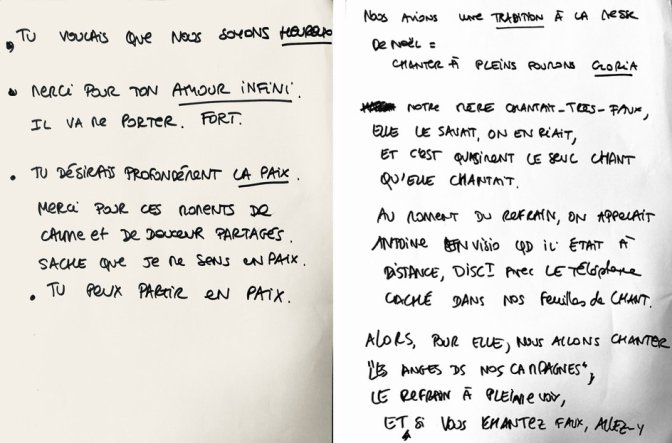 , TU VOULAIS QUE NOUS SOYONS HEUREUX
• MERCI POUR TON AMOUR INFINI.
IL VA ME PORTER. FORT.
• TU DÉSIRAIS PROFONDÉMENT LA PAIX.
MERCI POUR CES MOMENTS DE
CALME et DE DOUCEUR PARTAGÉS.
SACHE QUE JE ME SENS EN PAIX.
• TU PEUX PARTIR EN PAIX.
NOUS AVIONS UNE TRADITION À LA MESSE
DE NOËL =
CHANTER À PLEINS POUMONS GLORIA
NOTRE MÈRE CHANTAIT-TRES-FAUX,
ELLE LE SAVAIT, ON EN RIAIT,
ET C'EST QUASIMENT LE SEUL CHANT
QU'ELLE CHANTAIT.
AU MOMENT DU REFRAIN, ON APPELAIT
ANTOINE EN VISIO QD IL ÉTAIT À
DISTANCE, avec LE Téléphone
CACHÉ DANS NOS feuilles de CHANT.
ALORS, POUR ELLE, NOUS ALLONS CHANTER
"LES ANGES DS NOS CAMPAGNES",
LE REFRAIN À PLEINE VOIX,
ET SI VOUS CHANTEZ FAUX, ALLEZ-Y